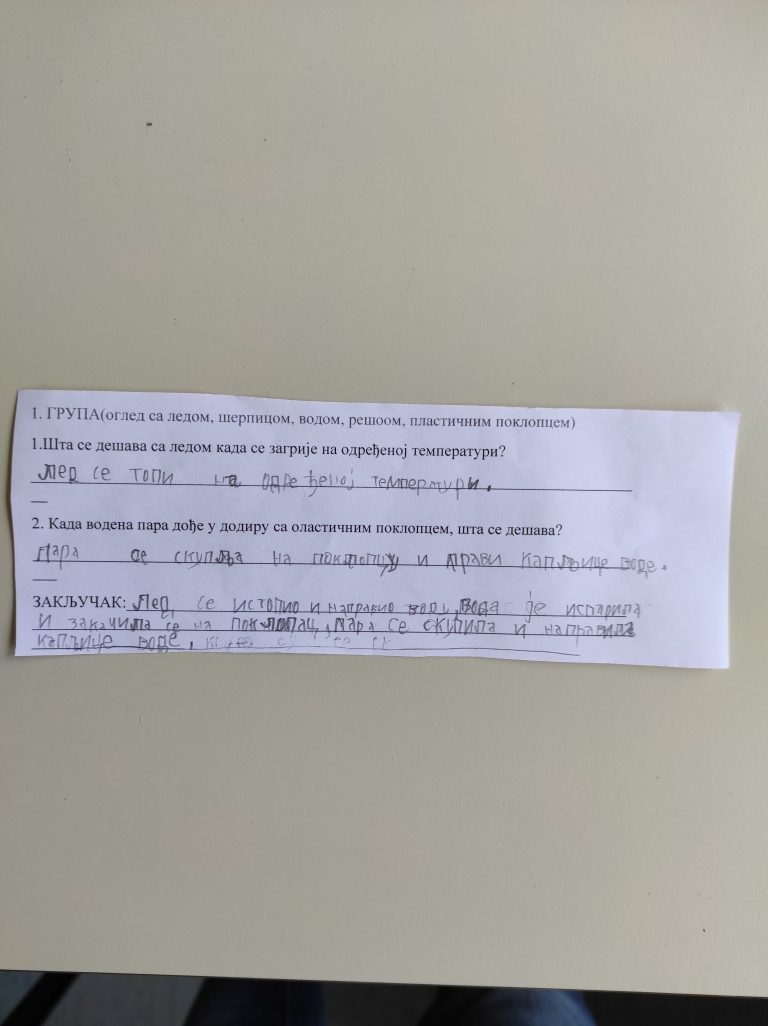 1. ГРУПА(оглед са ледом, шерпицом, водом, решоом, пластичним поклопцем)
1.Шта се дешава са ледом када се загрије на одређеној температури?
Лед се топи на одређеној температури.
2. Када водена пара дође у додиру са оластичним поклопцем, шта се дешава?
Пара се скупља на поклопцу и прави капљице воде.
ЗАКЉУЧАК: Лед се истопио и направио воду, вода је испарила
и закачила се на поклопац, пара се скупила и направила
капљице воде.